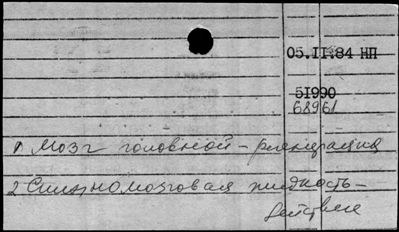 05.II.84 НП
51990
68961
1 Мозг головной – регенерация
2 Спинномозговая жидкость –
действие